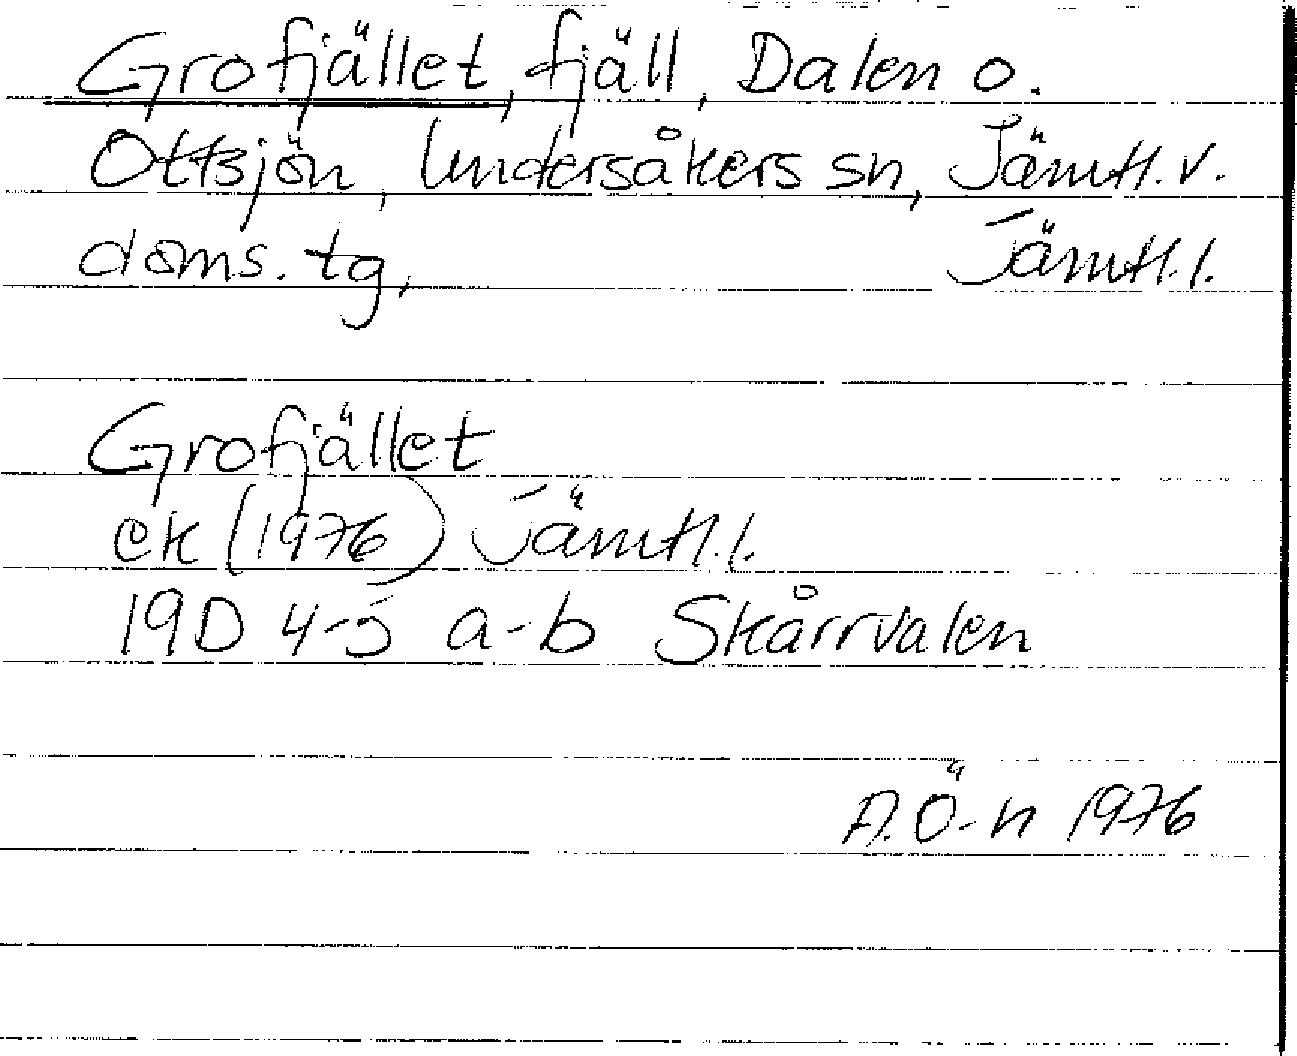 Grofjället, fjäll, Dalen o.
Ottsjön, Undersåkers sn, Jämtl. v.
doms. tg, Jämtl. l.
Grofjället
ek (1976) Jämtl. l.
19D 4-5 a-b Skårrvalen
A. Ö-n 1976